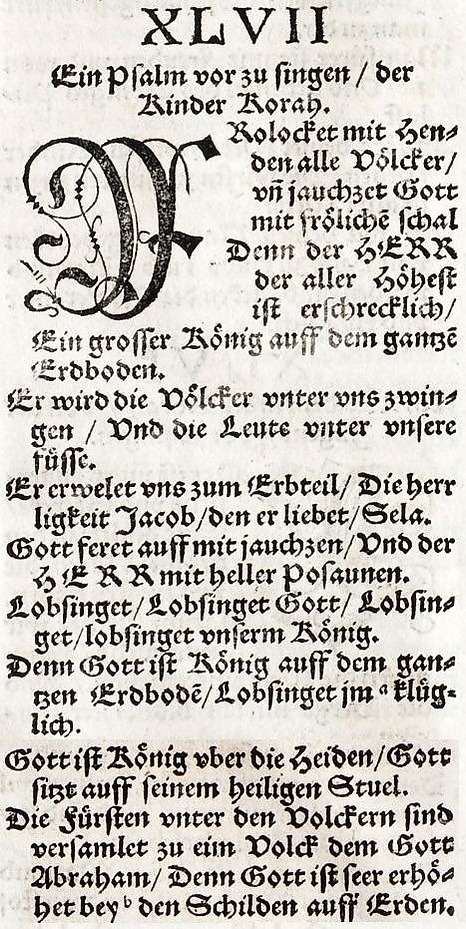 XLVII
Ein Psalm vor zu singen / der
Kinder Korah.
FRolocket mit Hen⸗
den alle Völcker/
vñ jauchzet Gott
mit frölichẽ schal
Denn der HERR
der aller Höhest
ist erschrecklich/
Ein grosser König auff dem gantzẽ
Erdboden.
Er wird die Völcker vnter vns zwin⸗
gen / Vnd die Leute vnter vnsere
füsse.
Er erwelet vns zum Erbteil/ Die herr
ligkeit Jacob/den er liebet/Sela.
Gott feret auff mit jauchzen/Vnd der
HERR mit heller Posaunen.
Lobsinget/Lobsinget Gott/ Lobsin⸗
get/lobsinget vnserm König.
Denn Gott ist König auff dem gan⸗
tzen Erdbodẽ/Lobsinget jm ᵃ klüg⸗
lich.
Gott ist König vber die Heiden/Gott
sitzt auff seinem heiligen Stuel.
Die Fürsten vnter den Volckern sind
versamlet zu eim Volck dem Gott
Abraham/ Denn Gott ist seer erhö⸗
het bey ᵇ den Schilden auff Erden.